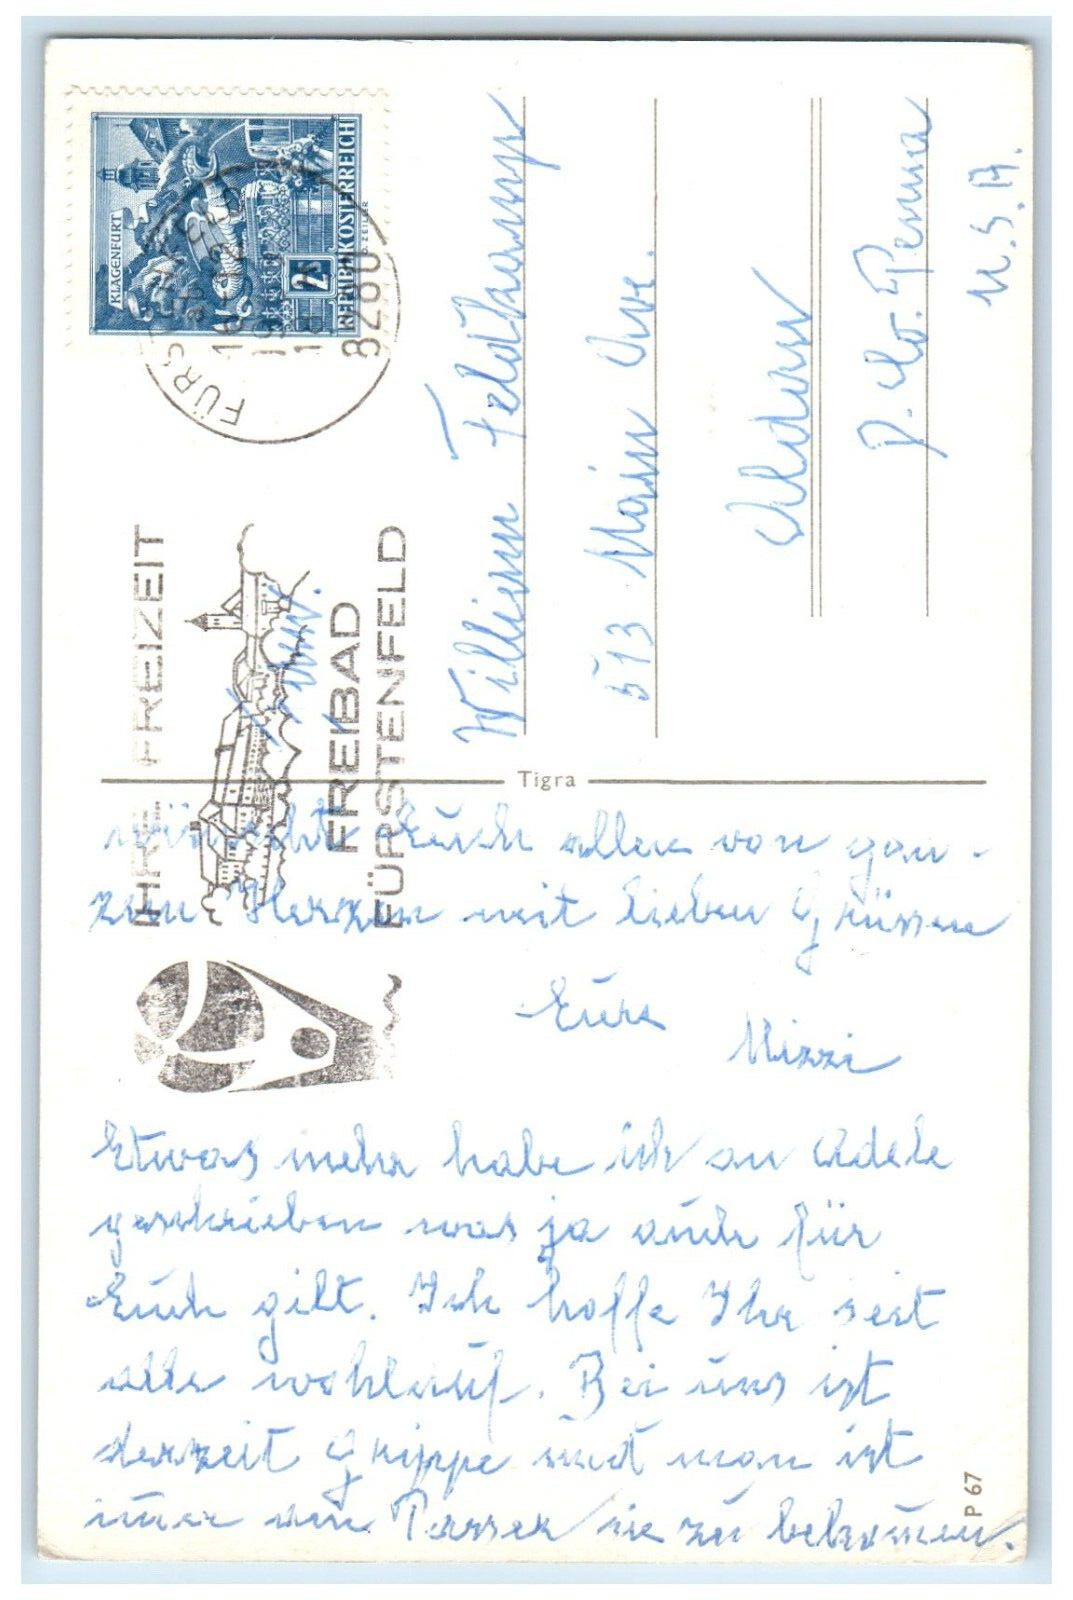 KLAGENFURT
2S
REPUBLIK ÖSTERREICH
O. ZEILER
FÜRSTENFELD
8280
IHRE FREIZEIT
FREIBAD
FÜRSTENFELD
Fam.
William Feldkamp
513 Main Ave.
Aldan
D. Co. Penna
U.S.A.
Tigra
wünscht Euch allen von gan-
zem Herzen mit lieben Grüssen
Eure
Mizzi
Etwas mehr habe ich an Adele
geschrieben was ja auch für
Euch gilt. Ich hoffe Ihr seit
alle wohlauf. Bei uns ist
derzeit Grippe und man ist
imer am Passer sie zu bekomen.
P 67